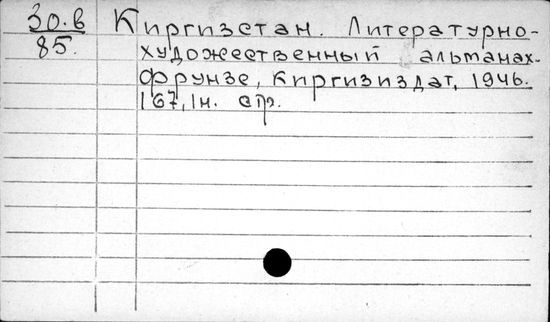 30.в Киргизстан. Литературно-
85. художественный альманах.
Фрунзе, Киргизиздат, 1946.
167, 1н. стр.